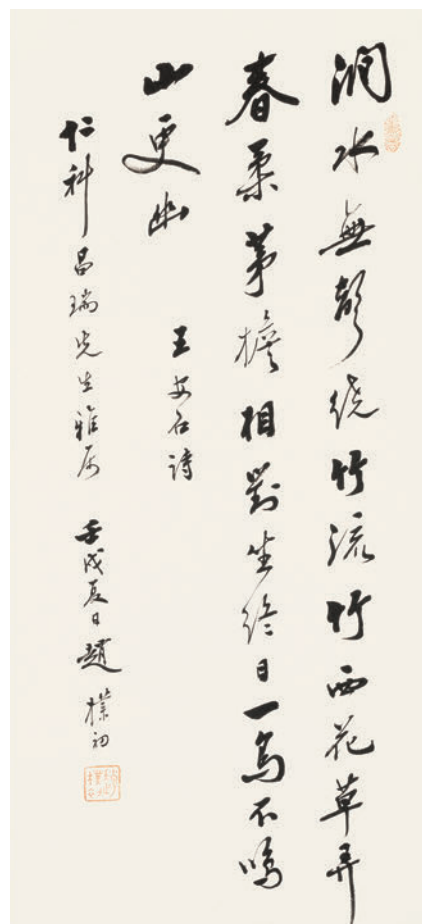 澗水無聲繞竹流竹西花草弄
春柔茅檐相對坐終日一鳥不鳴
山更幽
王安石詩
仁科昌瑞先生雅屬 壬戌夏日趙樸初